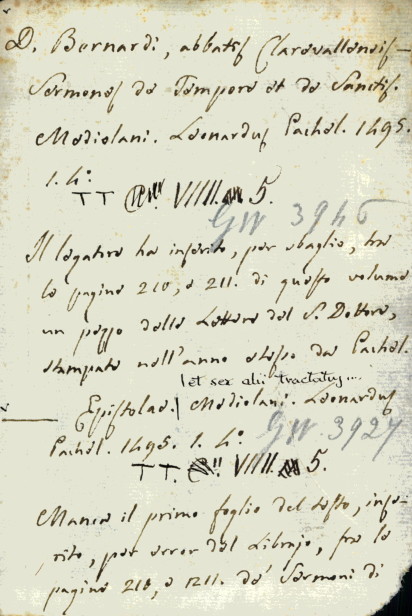 D. Bernardi, abbatis Clarevallensis
Sermones de Tempore et de Sanctis.
Mediolani. Leonardus Pachel. 1495.
1. 4.o
TT VIIII. 5.
GW 3946
Il legatore ha inserito, per sbaglio, tra
le pagine 210, e 211. di questo volume
un pezzo delle Lettere del S. Dottore,
stampate nell'anno stesso da Pachel.
let sex alii tractatus...
Epistolae. Mediolani. Leonardus
Pachel. 1495. 1. 4.o
GW 3927
TT. VIIII. 5.
Manca il primo foglio del testo, inse-
rito, per error del Librajo, fra le
pagine 210, e 211. de' Sermoni di